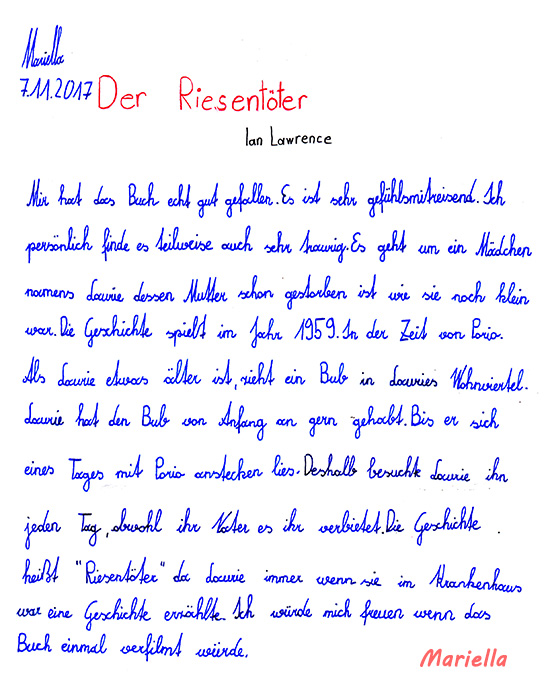 Mariella
7.11.2017 Der Riesentöter
Ian Lawrence
Mir hat das Buch echt gut gefallen. Es ist sehr gefühlsmitreisend. Ich
persönlich finde es teilweise auch sehr traurig. Es geht um ein Mädchen
namens Laurie dessen Mutter schon gestorben ist wie sie noch klein
war. Die Geschichte spielt im Jahr 1959. In der Zeit von Porio.
Als Laurie etwas älter ist, zieht ein Bub in Lauries Wohnviertel.
Laurie hat den Bub von Anfang an gern gehabt. Bis er sich
eines Tages mit Porio anstecken lies. Deshalb besuchte Laurie ihn
jeden Tag, obwohl ihr Vater es ihr verbietet. Die Geschichte
heißt "Riesentöter" da Laurie immer wenn sie im Krankenhaus
war eine Geschichte erzählte. Ich würde mich freuen wenn das
Buch einmal verfilmt würde.
Mariella